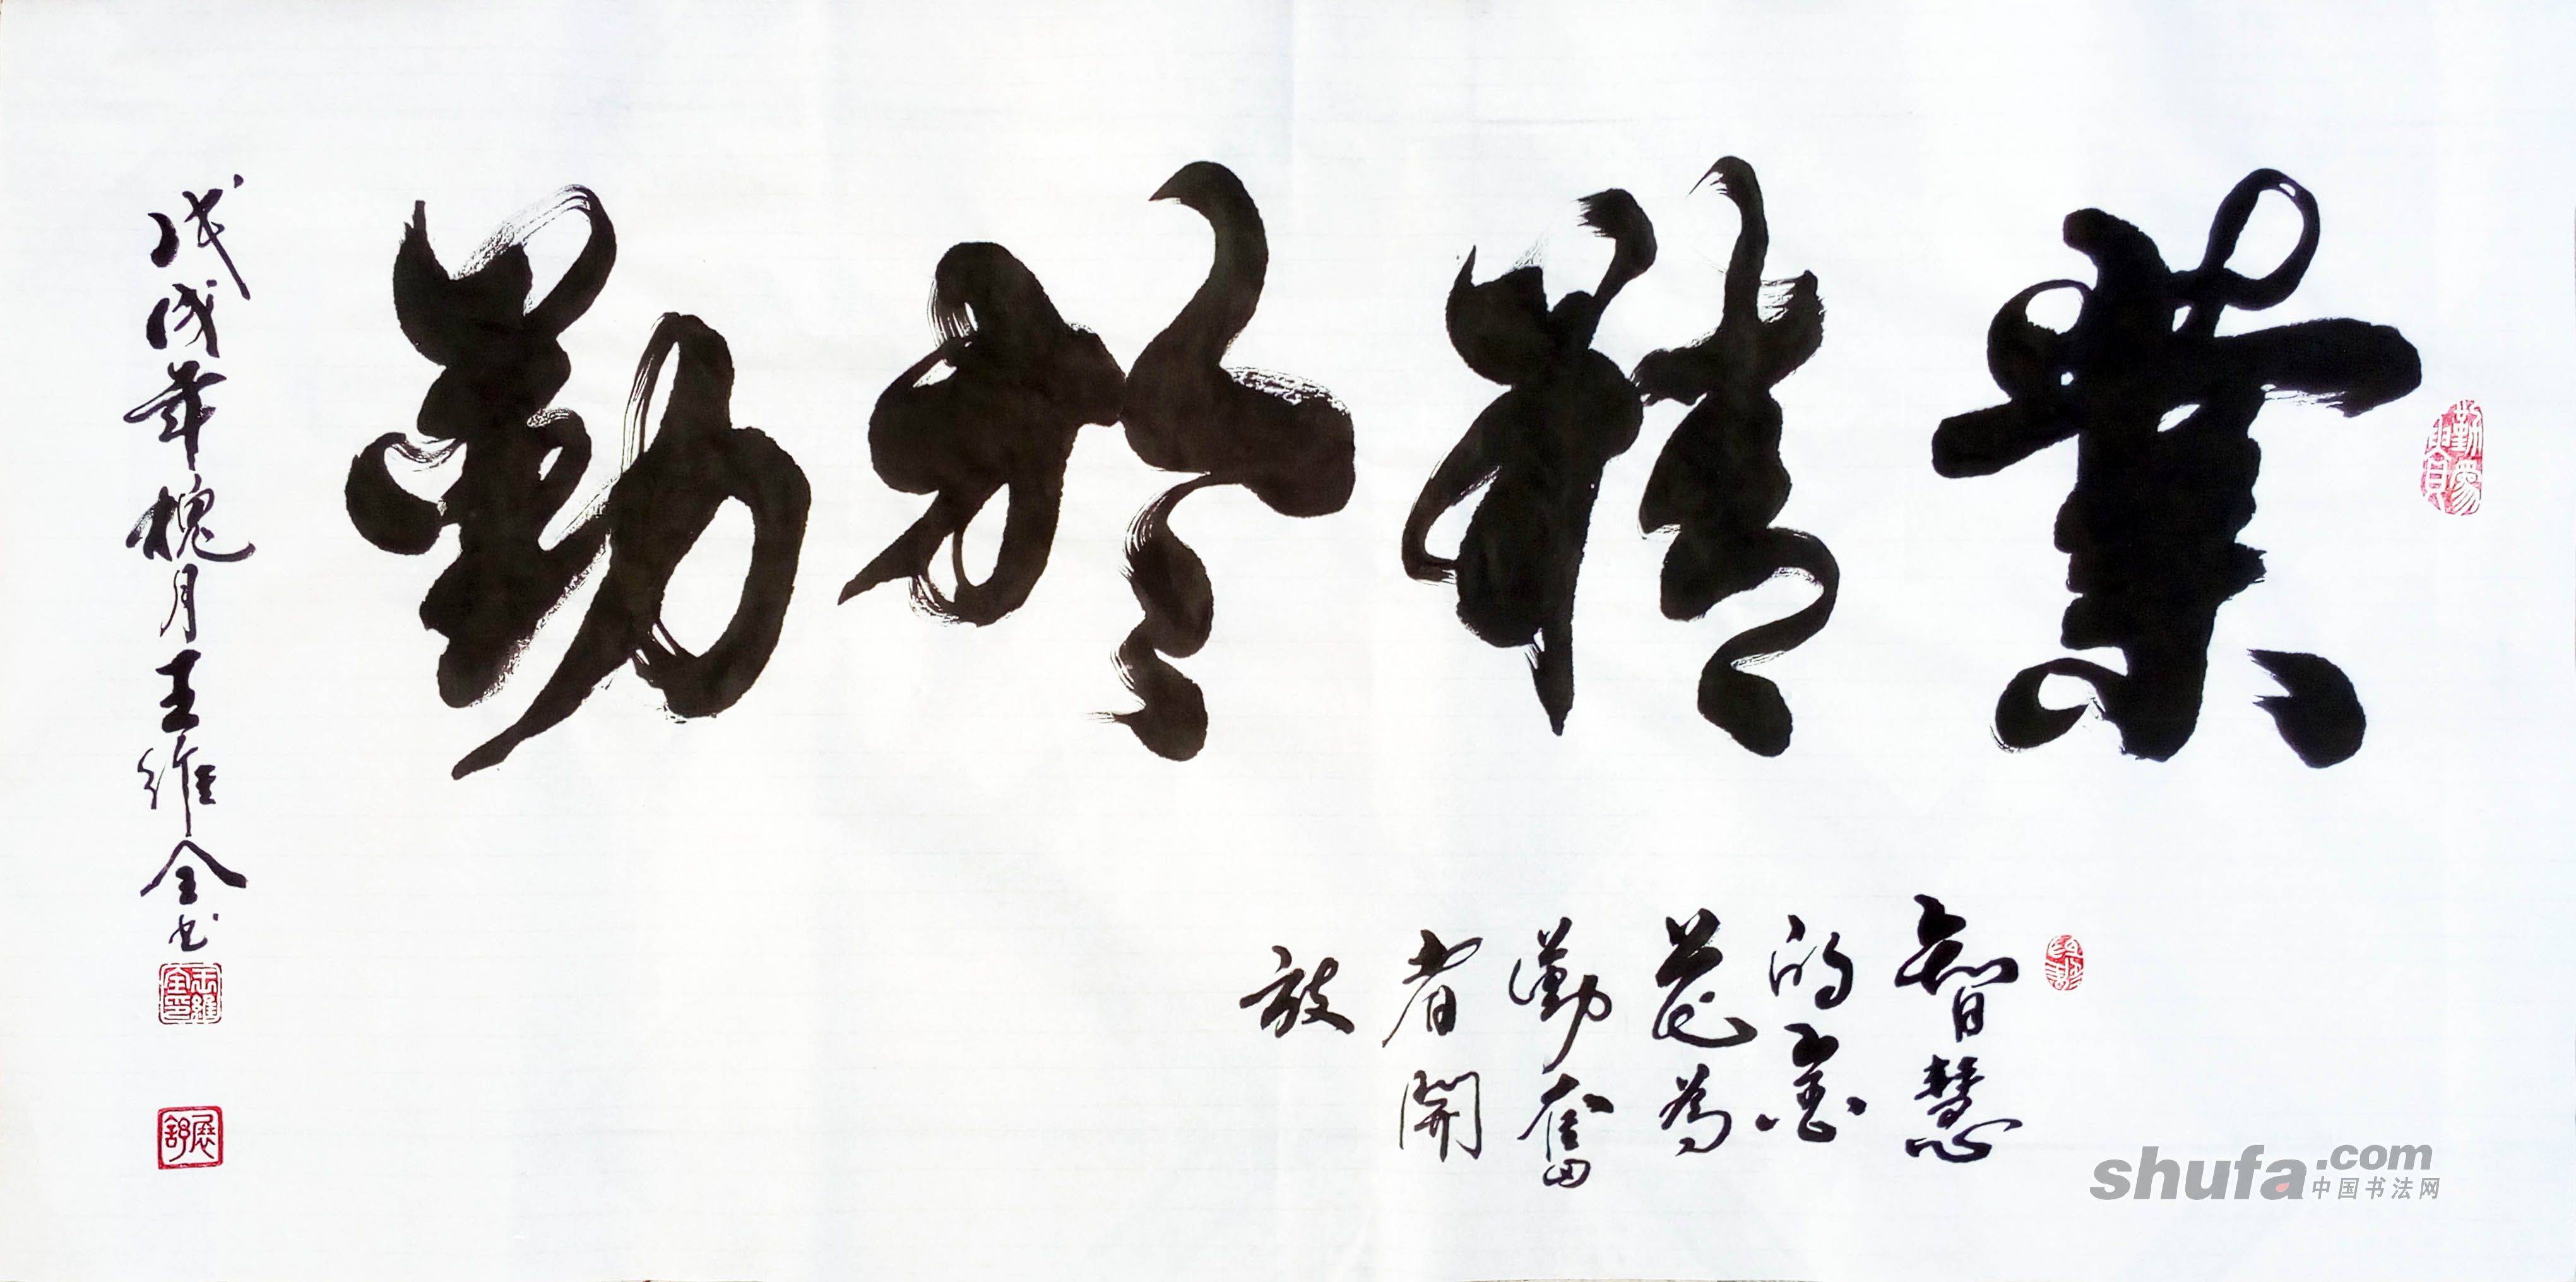 業精於勤
智慧
的金
花為
勤奮
者開
放
戊戌年槐月王維全书
王維全印
展舒
shufa.com
中国书法网